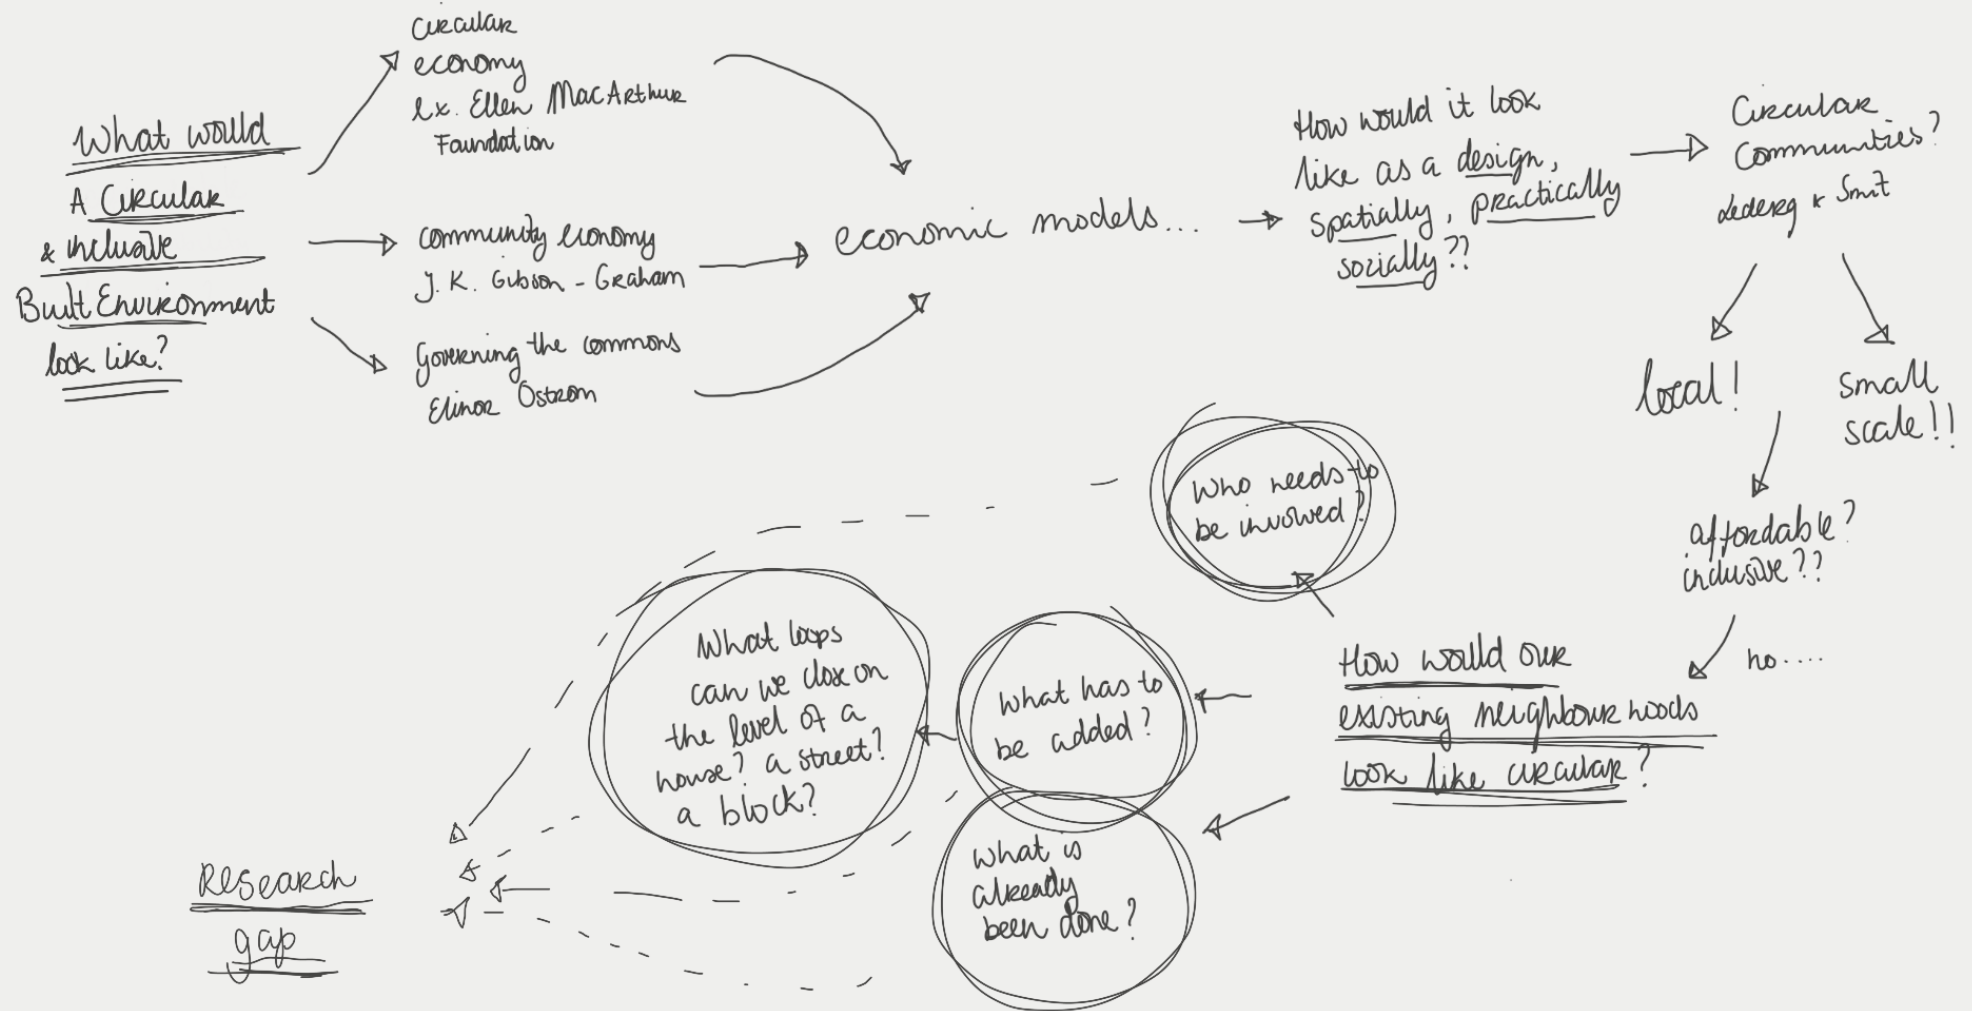 What would
A Circular
& inclusive
Built Environment
look like?
circular
economy
ex. Ellen MacArthur
Foundation
community economy
J.K. Gibson - Graham
Governing the commons
Elinor Ostrom
economic models...
How would it look
like as a design,
spatially, practically
socially??
Circular
Communities?
& Smit
local!
small
scale!!
affordable?
inclusive??
no....
How would our
existing neighbourhoods
look like circular?
Who needs to
be involved?
What has to
be added?
What is
already
been done?
What loops
can we close on
the level of a
house? a street?
a block?
Research
gap